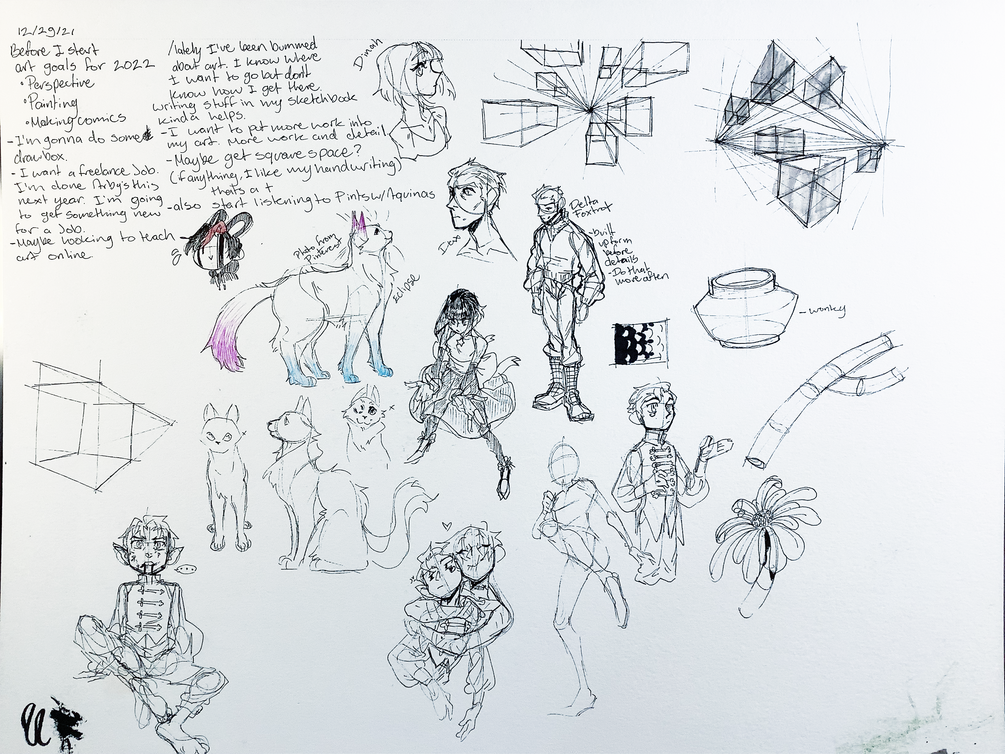 12/29/21
Before I start
art goals for 2022
•Perspective
•Painting
•Making comics
-I'm gonna do some
drawbox.
-I want a freelance Job.
I'm done Arby's this
next year. I'm going
to get something new
for a Job.
-Maybe looking to teach
art online
/lately I've been bummed
about art. I know where
I want to go but dont
know how I get there.
writing stuff in my sketchbook
kinda helps.
-I want to put more work into
my art. More work and detail
-Maybe get squarespace?
(if anything, I like my handwriting)
thats a +
-also start listening to Pints w/ Aquinas
Dinah
Photo from
Pinterest
Eclipse
Delta
Foxtrot
-built
up form
before
details
-Do that
more often
-wonky
...